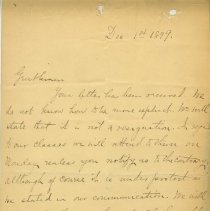 Dec 1st 1899.
Gentlemen
Your letter has been received. We
do not know how to be more explicit. We will
state that it is not a resignation. In regard
to our classes we will attend to them on
Monday unless you notify us to the contrary,
although of course it is under protest as
we stated in our communication. We will